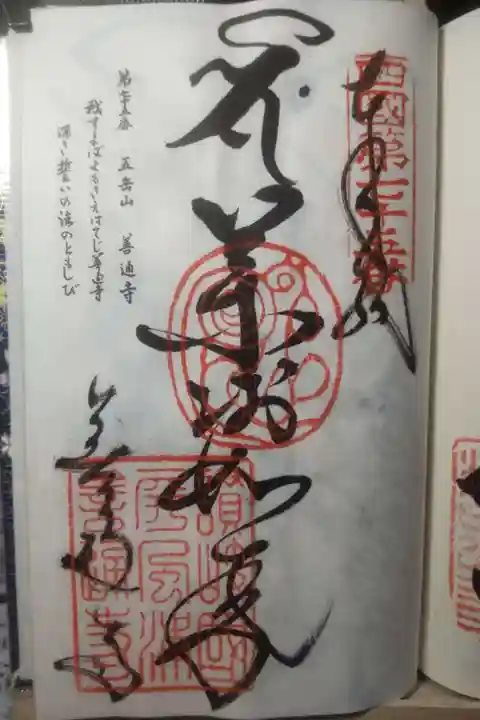 四國第七十五番
薬師如来
讃岐國
屏風浦
善通寺
善通寺
第七十五番　五岳山　善通寺
我すまばよもきえはてじ善通寺
深き誓いの法のともしび